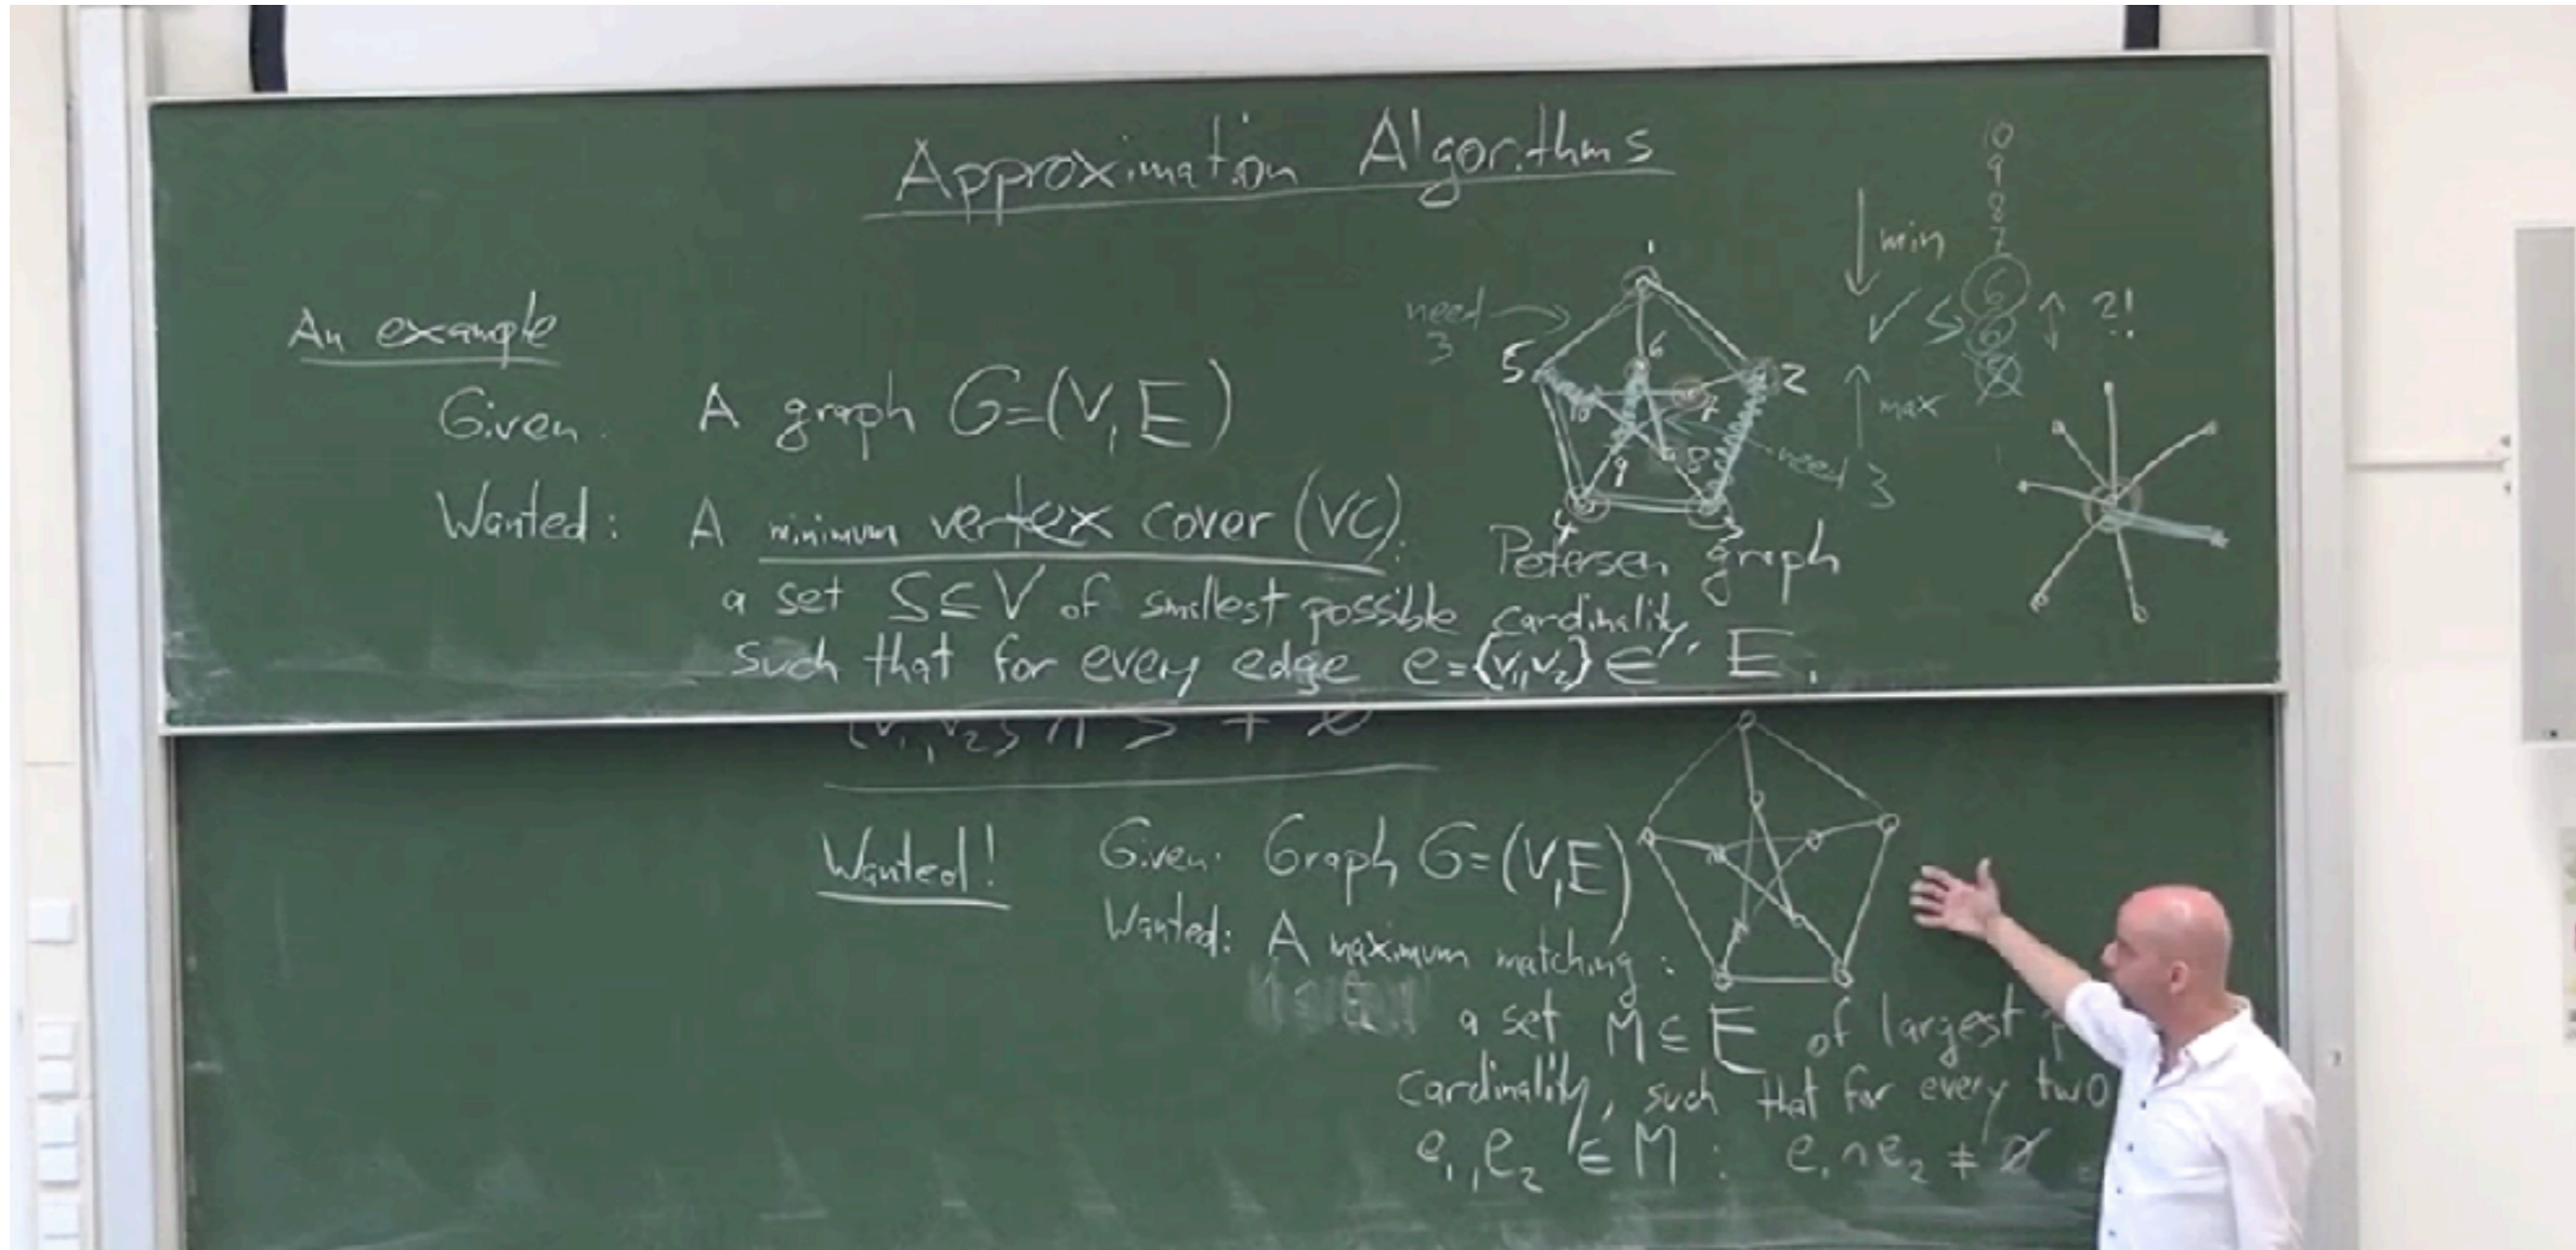 Approximation Algorithms
An example
Given: A graph G=(V,E)
Wanted: A minimum vertex cover (VC):
a set S⊆V of smallest possible cardinality,
such that for every edge e={v₁,v₂}∈E.
need
3
1
5
6
2
10
7
9
8
4
3
need 3
Petersen graph
min
max
10
9
8
7
6
6
5
✓
?!
{v₁,v₂}∩S≠∅
Wanted!
Given: Graph G=(V,E)
Wanted: A maximum matching:
a set M⊆E of largest
cardinality, such that for every two
e₁,e₂∈M: e₁∩e₂≠∅